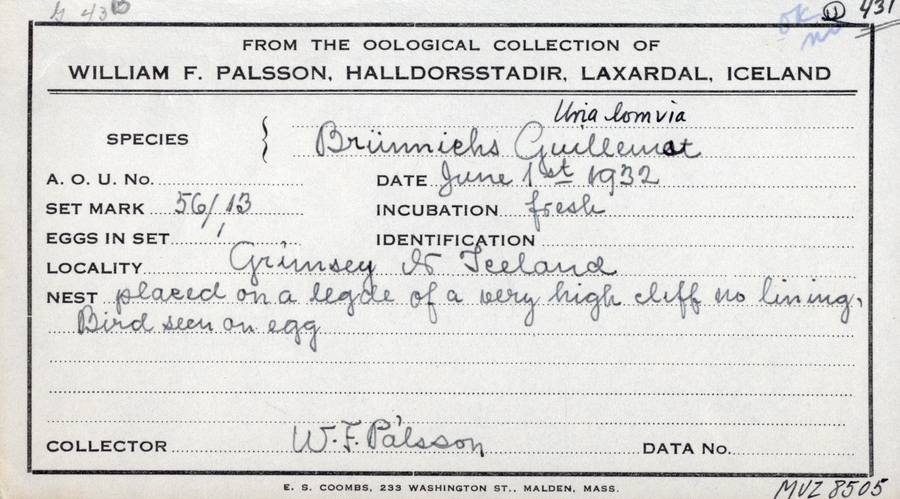 431
ok
no
FROM THE OOLOGICAL COLLECTION OF
WILLIAM F. PALSSON, HALLDORSSTADIR, LAXARDAL, ICELAND
Uria lomvia
SPECIES Brünnichs Guillemot
A. O. U. No. DATE June 1st 1932
SET MARK 56/13 INCUBATION fresh
EGGS IN SET 1 IDENTIFICATION
LOCALITY Grimsey N Iceland
NEST placed on a legde of a very high cliff no lining.
Bird seen on egg
COLLECTOR W. F. Pálsson DATA No.
E. S. COOMBS, 233 WASHINGTON ST., MALDEN, MASS.
MVZ 8505